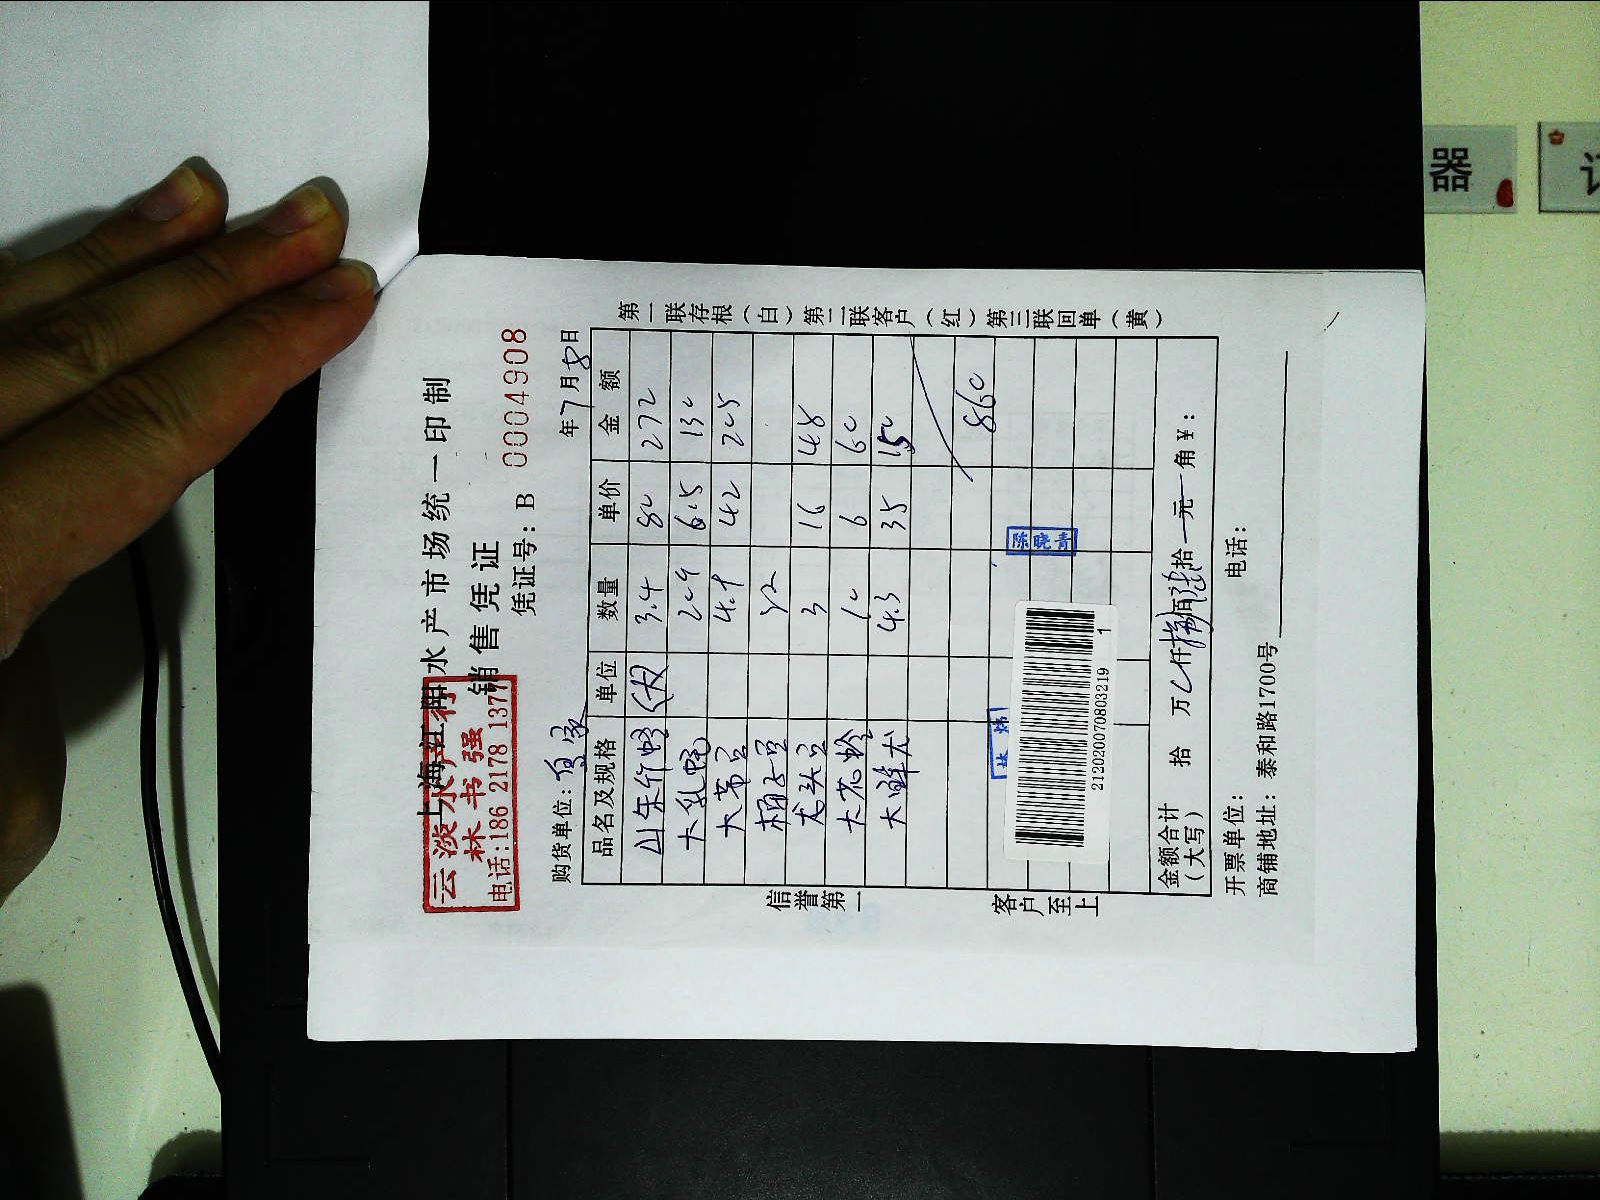 上海江阳水产市场统一印制
销售凭证
云淡水产行
林书强
电话:186 2178 1377
凭证号: B 0004908
购货单位: 年7月8日
品名及规格 单位 数量 单价 金额
3.4 80 272
大乳鸽 20 6.5 130
4.9 42 205
龙头豆 3 16 48
大花蛤 10 6 60
4.3 35 150
860
陈晓青
林炜
21202007080321​9 1
金额合计(大写) 拾 万 仟捌佰陆拾 元 角 ¥:
开票单位: 电话:
商铺地址: 泰和路1700号
信誉第一
客户至上
第一联存根(白)第二联客户(红)第三联回单(黄)
器